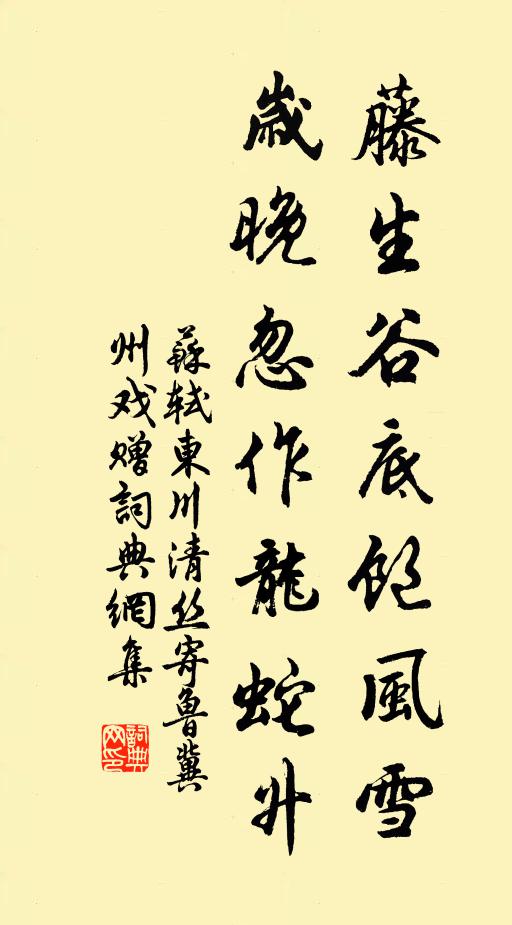 藤生谷底飽風雪
歲晚忽作龍蛇升
蘇軾東川清丝寄魯冀
州戏赠詞典網集
詞典網印